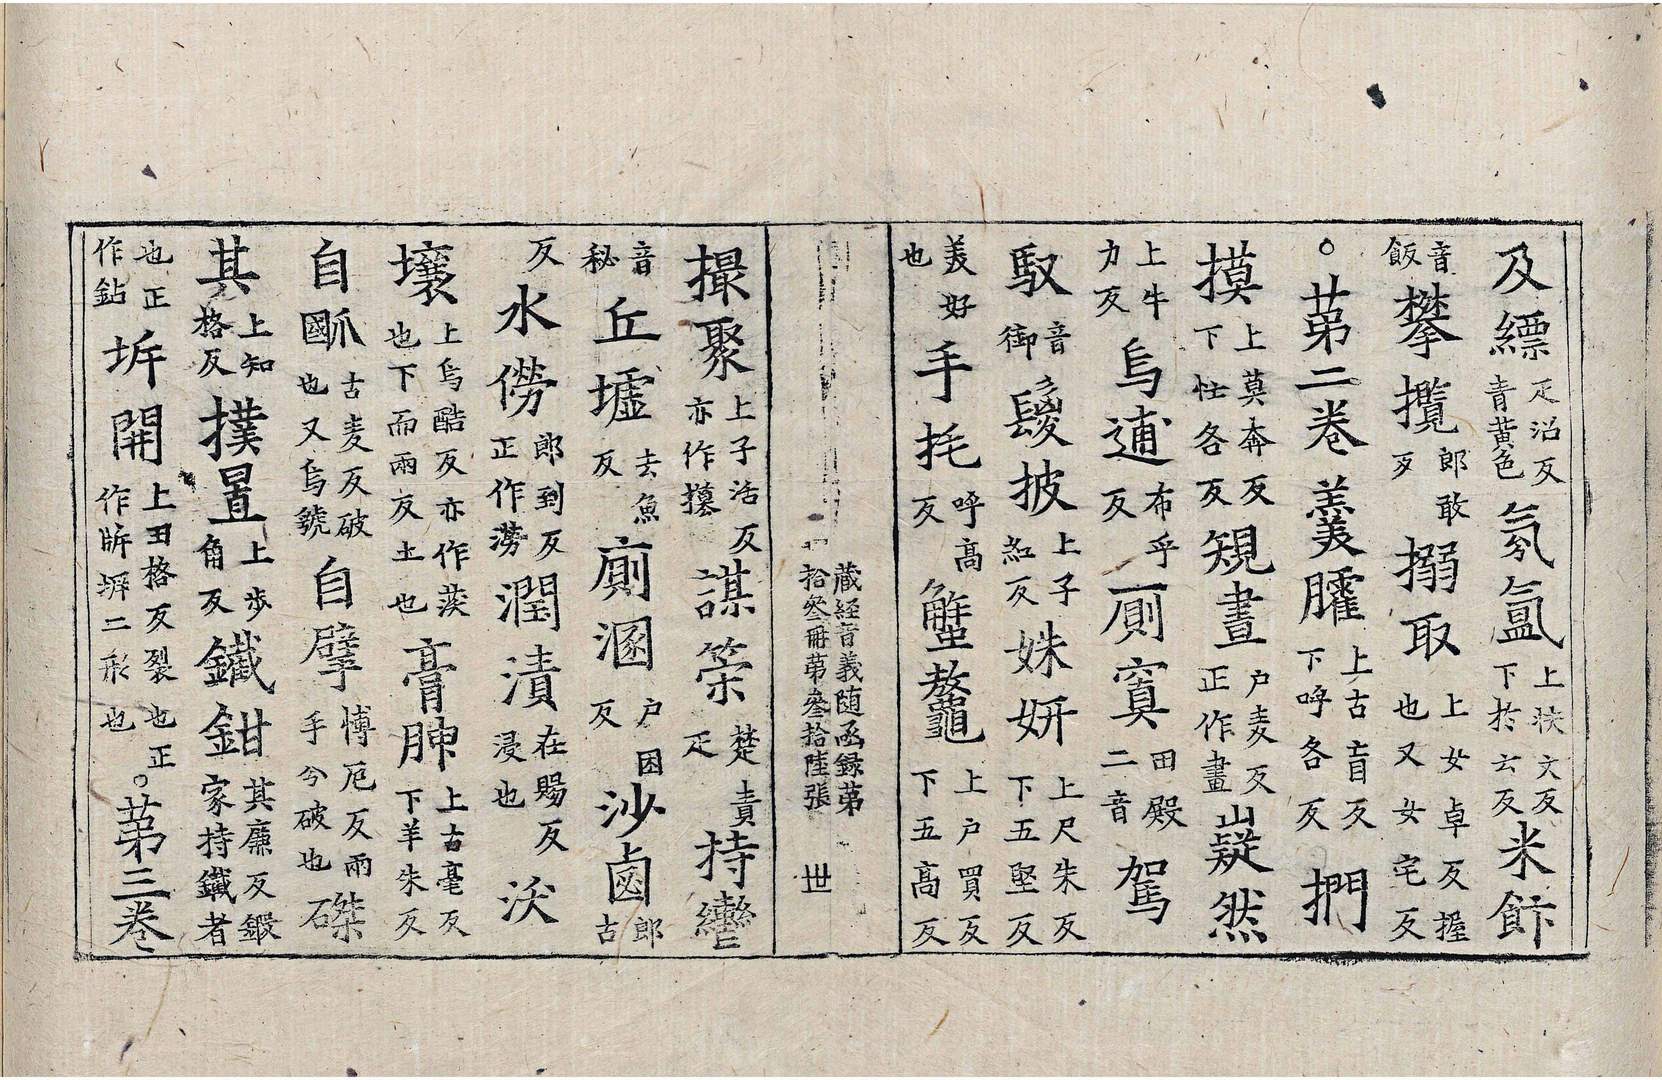 及縹疋沼反青黃色氛氲上扶文反下於云反米飰
音飯攀攬郎敢反搦取上女卓反握也又女宅反
○苐二卷羹臛上古盲反下呼各反捫
摸上莫奔反下忙各反規晝户麦反正作畫凝然
上牛力反烏逋布乎反厠窴田殿二音駕
馭音御鬉披上子紅反姝妍上尺朱反下五堅反
美好也手抚呼高反蟹鼇上户買反下五高反
藏經音義随函録苐
拾叄冊苐叄拾陸張
世
撮聚上子活反亦作撮謀筞楚責疋持轡
音秘丘墟去魚反廁溷户困反沙鹵郎古
反水僗郎到反正作澇潤漬在賜反浸也沃
壤上烏酷反亦作茯也下而兩反土也膏腴上古毫反下羊朱反
自㼌古麦反破也又烏號自擘愽厄反兩手分破也磔
其上知格反撲置上步角反鐵鉗其廉反鍛家持鐵者
也正作鉆㘸開上田格反裂也正作㸿㙤二形也○苐三卷